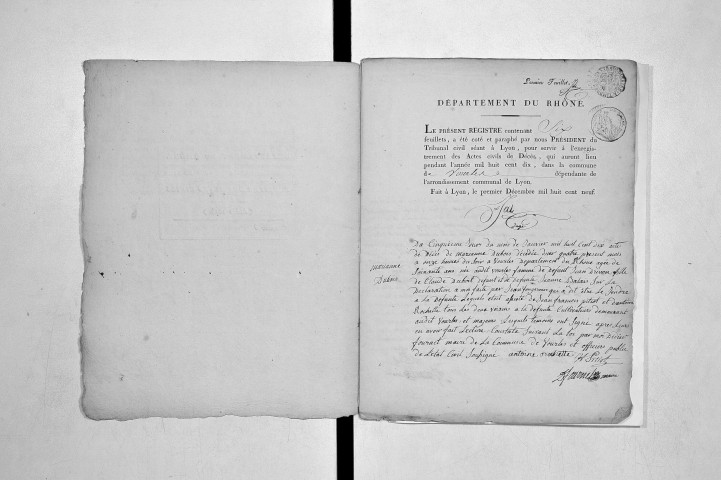 Premier Feuillet
DÉPARTEMENT DU RHÔNE.
LE PRÉSENT REGISTRE contenant Six
feuillets, a été coté et paraphé par nous PRÉSIDENT du
Tribunal civil séant à Lyon, pour servir à l'enregis-
trement des Actes civils de Décès, qui auront lieu
pendant l'année mil huit cent dix, dans la commune
de Vourles dépendante de
l'arrondissement communal de Lyon.
Fait à Lyon, le premier Décembre mil huit cent neuf.
Du Cinquieme jour du mois de Janvier mil huit Cent dix acte
de Décès de marianne Dubois décédée hier quatre present mois
a onze heures du Soir a Vourles Departement du Rhône agée de
Soixante ans née audit Vourles famme de defunt Jean fille
de Claude Dubois defunt et de defunte Jeanne Sur la
Declaration a moi faite par qui a dit etre Le Gendre
a la defunte Lequels etoit assisté de Jean francois pitiot et d'antoine
tous Les deux voisins a la defunte Cultivateurs demeurant
audit Vourles et majeurs Lesquels temoins ont Signé après Leurs
en avoir fait Lecture Constaté Suivant La loi par moi
maire de La Commune de Vourles et officier public
de L'etat Civil Soussigné antoine
marianne
Dubois